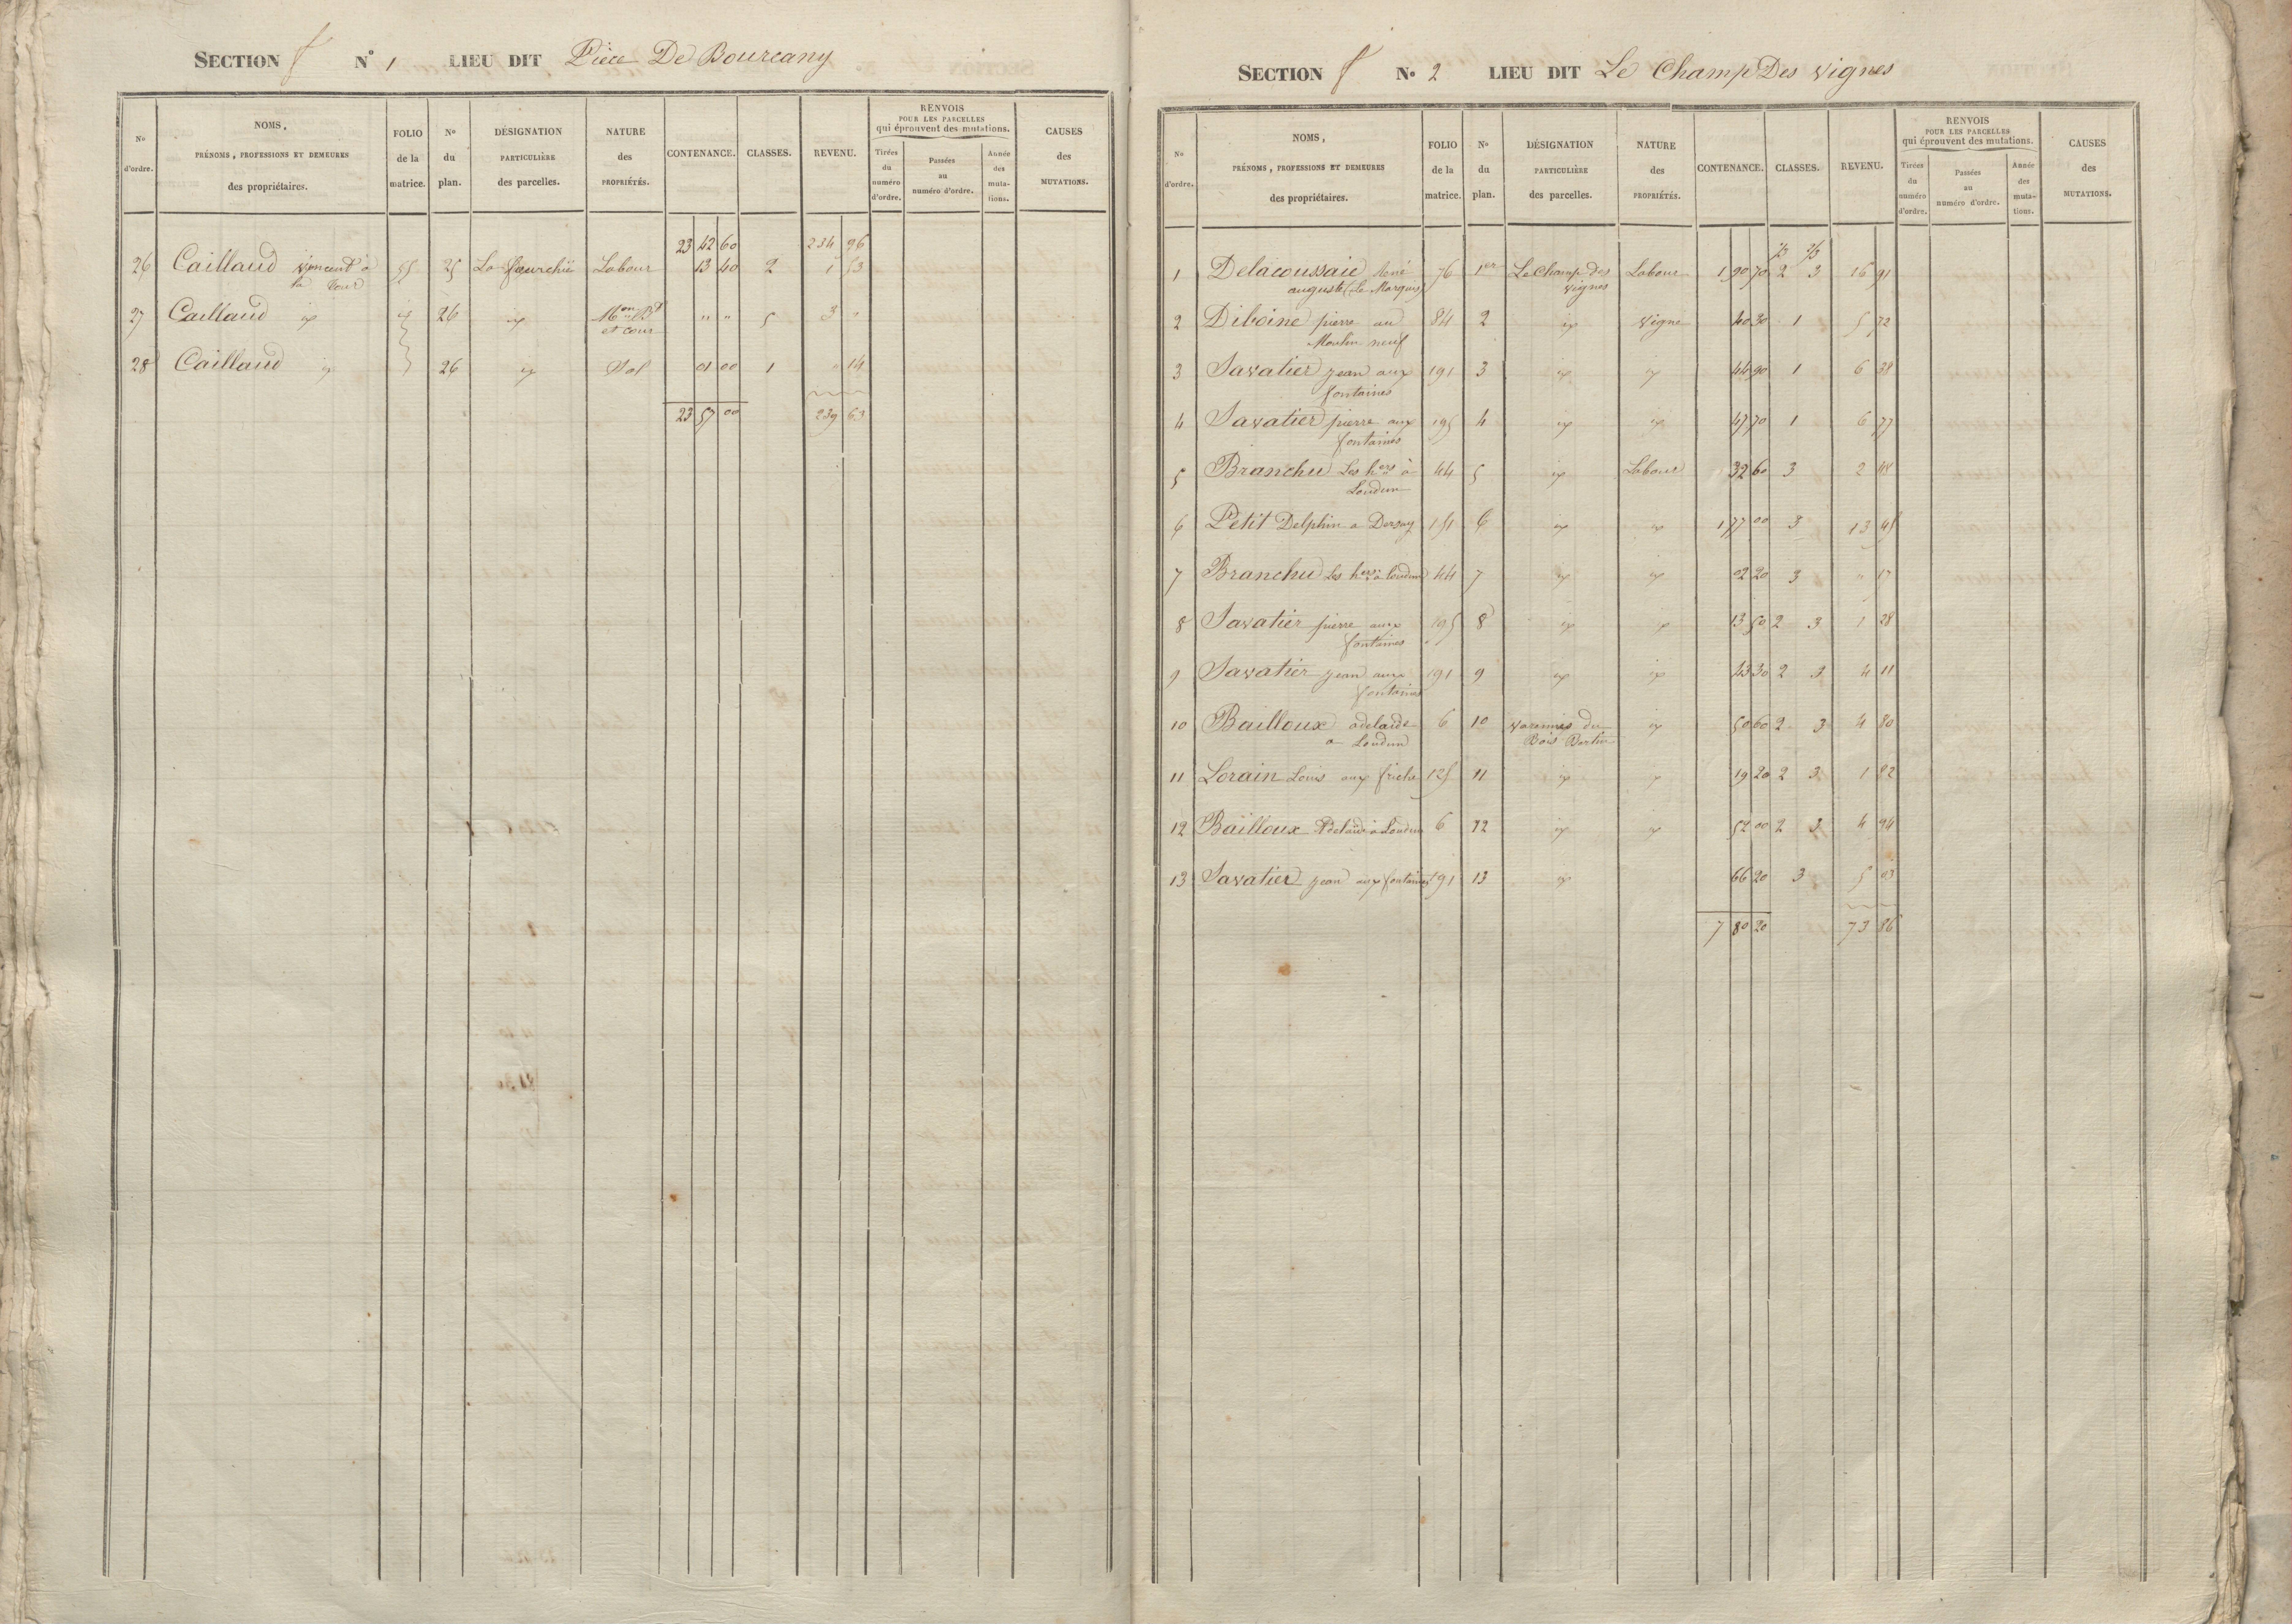 SECTION f N° 1 LIEU DIT Pièce De Bourcany
N° d'ordre.
NOMS, PRÉNOMS, PROFESSIONS ET DEMEURES des propriétaires.
FOLIO de la matrice.
N° du plan.
DÉSIGNATION PARTICULIÈRE des parcelles.
NATURE des PROPRIÉTÉS.
CONTENANCE.
CLASSES.
REVENU.
RENVOIS POUR LES PARCELLES qui éprouvent des mutations.
Tirées du numéro d'ordre.
Passées au numéro d'ordre.
Année des mutations.
CAUSES des MUTATIONS.
23 42 60 234 96
26 Caillaud Vincent à 55 25 La fourchie Labour 13 40 2 1 53
la Tour
27 Caillaud id id 26 id Mon Bd " " 5 3 "
et cour
28 Caillaud id 26 id Sol 01 00 1 " 14
23 57 00 239 63
SECTION f N° 2 LIEU DIT Le Champ Des Vignes
N° d'ordre.
NOMS, PRÉNOMS, PROFESSIONS ET DEMEURES des propriétaires.
FOLIO de la matrice.
N° du plan.
DÉSIGNATION PARTICULIÈRE des parcelles.
NATURE des PROPRIÉTÉS.
CONTENANCE.
CLASSES.
REVENU.
RENVOIS POUR LES PARCELLES qui éprouvent des mutations.
Tirées du numéro d'ordre.
Passées au numéro d'ordre.
Année des mutations.
CAUSES des MUTATIONS.
1/3 2/3
1 Delacoussaie René 76 1er Le champ des Labour 1 90 70 2 3 16 91
auguste (le Marquis) vignes
2 Diboine pierre au 84 2 id Vigne 40 30 1 5 72
Moulin neuf
3 Savatier jean aux 191 3 id id 44 90 1 6 38
fontaines
4 Savatier pierre aux 195 4 id id 47 70 1 6 77
fontaines
5 Branchu Les hers à 44 5 id Labour 32 60 3 2 48
Loudun
6 Petit Delphin a Dersay 151 6 id id 1 77 00 3 13 45
7 Branchu Les hers à Loudun 44 7 id id 02 20 3 " 17
8 Savatier pierre aux 195 8 id id 13 50 2 3 1 28
fontaines
9 Savatier jean aux 191 9 id id 43 30 2 3 4 11
fontaines
10 Bailloux adelaide 6 10 Varennes du id 50 60 2 3 4 80
a Loudun Bois Bertin
11 Lorain Louis aux friche 125 11 id id 19 20 2 3 1 82
12 Bailloux Adelaide à Loudun 6 12 id id 52 00 2 3 4 94
13 Savatier jean aux fontaines 191 13 id 66 20 3 5 03
7 80 20 73 86